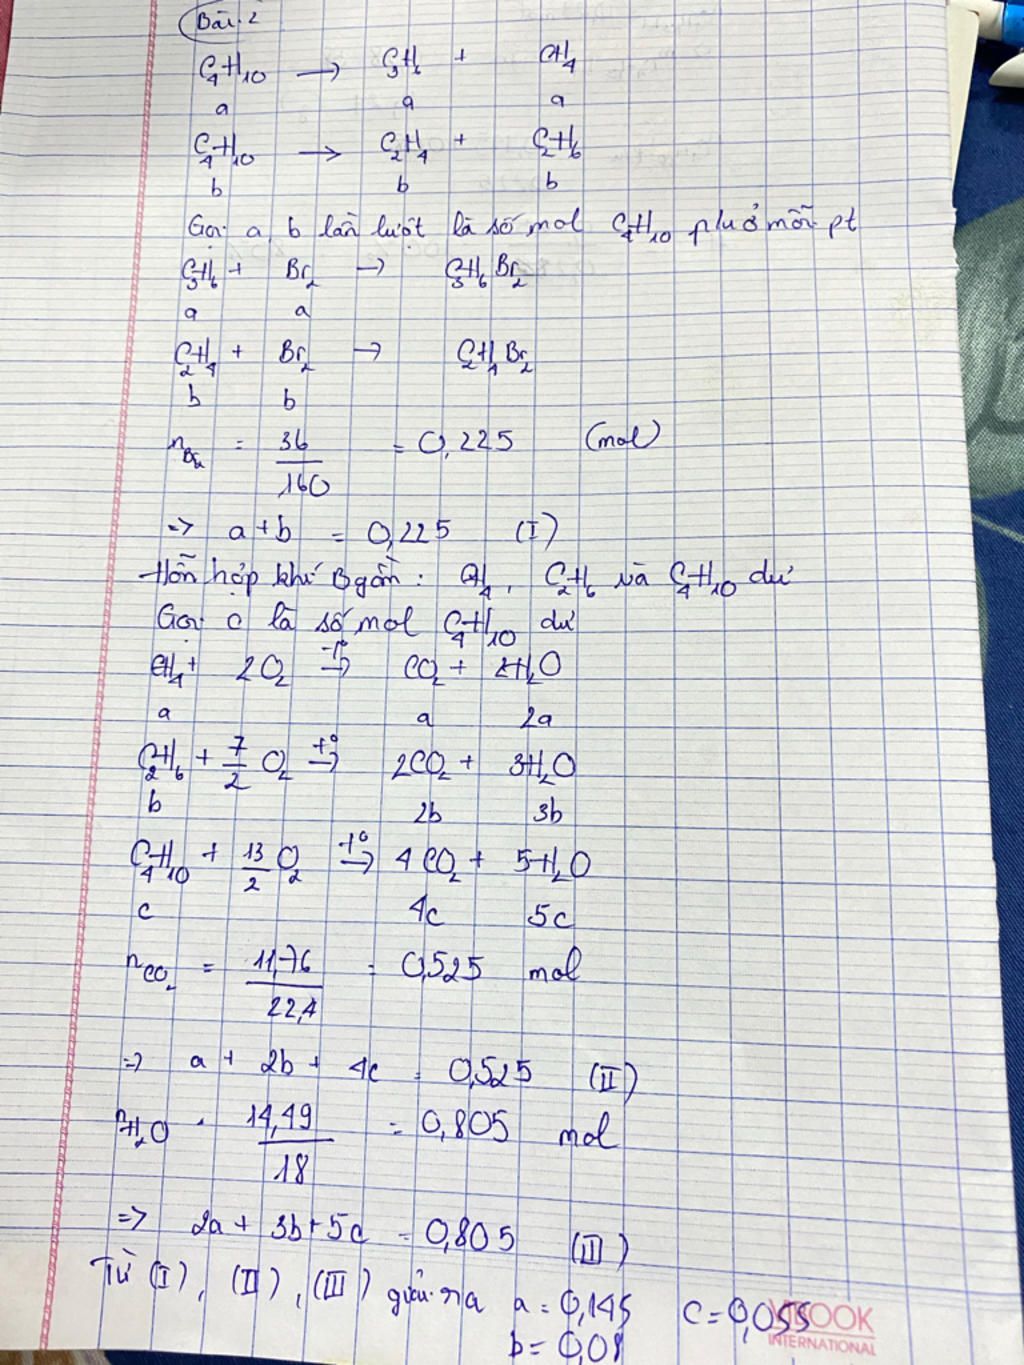 Bài 2
C4H10 → C3H6 + CH4
a a a
C4H10 → C2H4 + C2H6
b b b
Gọi a, b lần lượt là số mol C4H10 pứ ở mỗi pt
C3H6 + Br2 → C3H6Br2
a a
C2H4 + Br2 → C2H4Br2
b b
nBr2 = 36/160 = 0,225 (mol)
=> a+b = 0,225 (I)
Hỗn hợp khí B gồm: CH4, C2H6 và C4H10 dư
Gọi c là số mol C4H10 dư
CH4 + 2O2 t°→ CO2 + 2H2O
a a 2a
C2H6 + 7/2 O2 t°→ 2CO2 + 3H2O
b 2b 3b
C4H10 + 13/2 O2 t°→ 4CO2 + 5H2O
c 4c 5c
nCO2 = 11,76/22,4 = 0,525 mol
=> a + 2b + 4c = 0,525 (II)
nH2O = 14,49/18 = 0,805 mol
=> 2a + 3b + 5c = 0,805 (III)
Từ (I), (II), (III) giải ra a = 0,145 c = 0,055
b = 0,08
VIBOOK
INTERNATIONAL